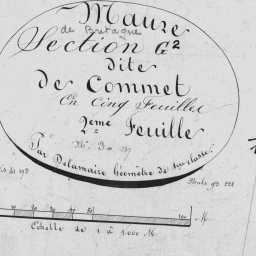 Maure
de Bretagne
Section G2
dite
de Commet
En Cinq Feuilles
2eme Feuille
Par Delamaire Géomètre de 1ere classe.
Echelle de 1 à 5000 M.